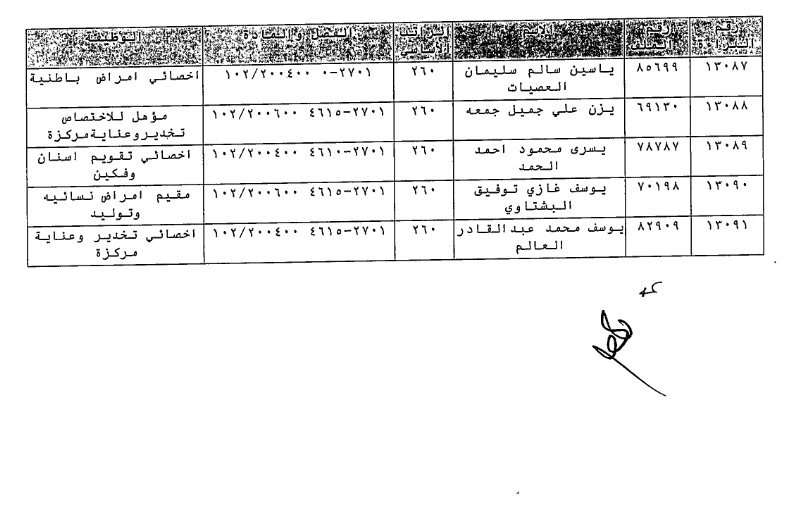 رقم النشرة رقم الملف الاسم الراتب الأساسي الفصل والمادة الوظيفة
١٣٠٨٧ ٨٥٦٩٩ ياسين سالم سليمان ٢٦٠ ٢٧٠١-٠ ١٠٢/٢٠٠٤٠٠ اخصائي امراض باطنية
العصيات
١٣٠٨٨ ٦٩١٣٠ يزن علي جميل جمعه ٢٦٠ ٢٧٠١-٤٦١٥ ١٠٢/٢٠٠٦٠٠ مؤهل للاختصاص
تخدير وعناية مركزة
١٣٠٨٩ ٧٨٧٨٧ يسرى محمود احمد ٢٦٠ ٢٧٠١-٤٦١٠ ١٠٢/٢٠٠٤٠٠ اخصائي تقويم اسنان
الحمد وفكين
١٣٠٩٠ ٧٠١٩٨ يوسف غازي توفيق ٢٦٠ ٢٧٠١-٤٦١٥ ١٠٢/٢٠٠٦٠٠ مقيم امراض نسائيه
البشتاوي وتوليد
١٣٠٩١ ٨٢٩٠٩ يوسف محمد عبدالقادر ٢٦٠ ٢٧٠١-٤٦١٥ ١٠٢/٢٠٠٤٠٠ اخصائي تخدير وعناية
العالم مركزة